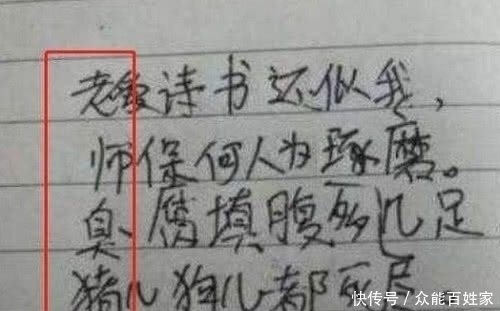 老教诗书还似我，
师保何人为琢磨。
臭腐填腹多几足
猪儿狗儿都死尽
快传号／众能百姓家